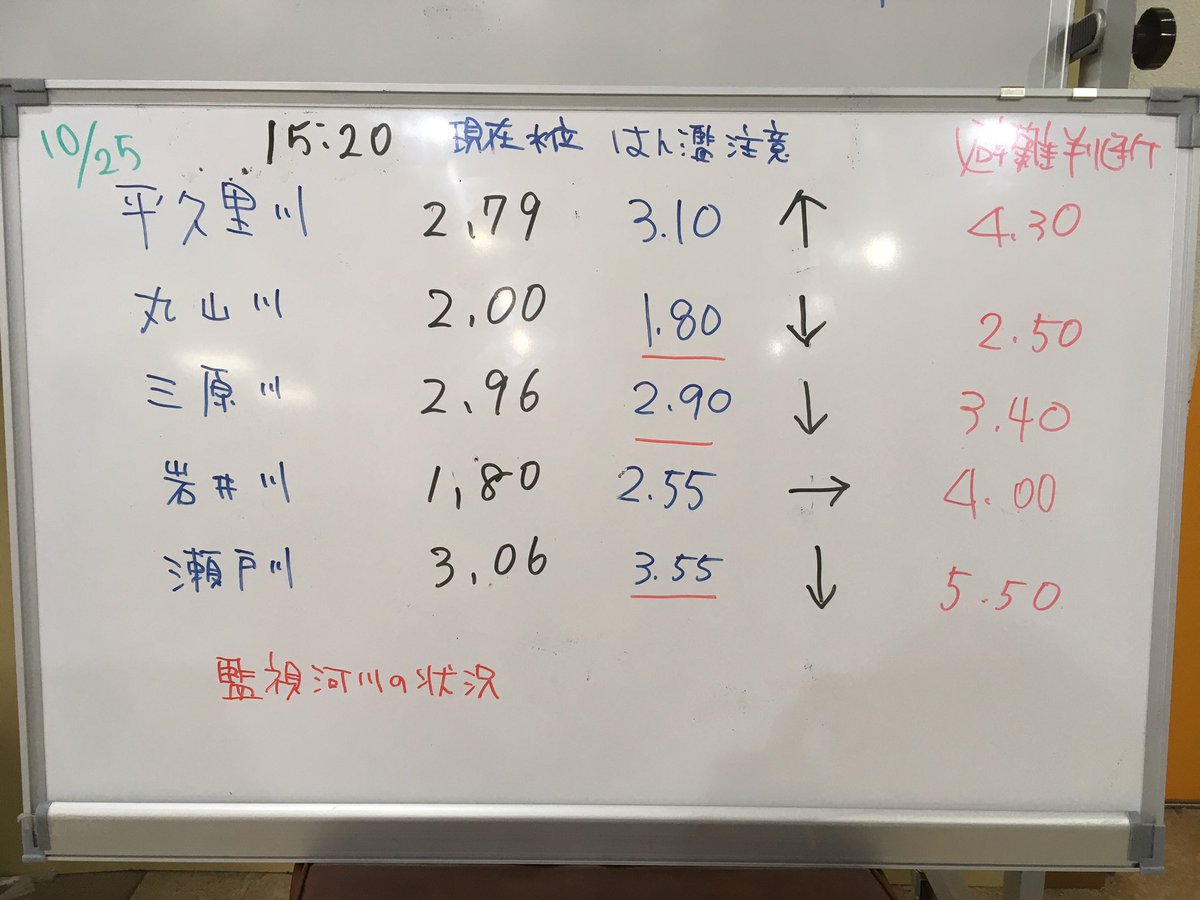 10/25 15:20 現在水位 はん濫注意 避難判断
平久里川 2.79 3.10 ↑ 4.30
丸山川 2.00 1.80 ↓ 2.50
三原川 2.96 2.90 ↓ 3.40
岩井川 1.80 2.55 → 4.00
瀬戸川 3.06 3.55 ↓ 5.50
監視河川の状況